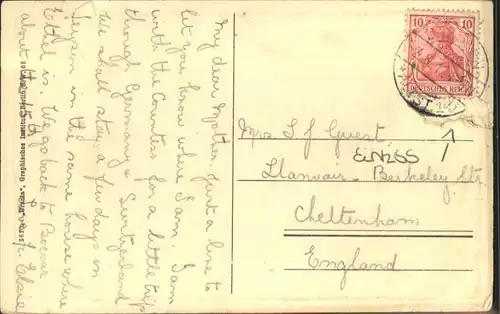 My dear Mother Just a line to
let you know where I am. I am
with the Countess for a little trip
through Germany & Switzerland
We shall stay a few days in
Leysin in the same house where
Ethel is. We go back to
about the 15th
Claire
10
10
DEUTSCHES REICH
Mrs I f Guest
EINZOS
Llanvair - Berkeley Str
Cheltenham
England